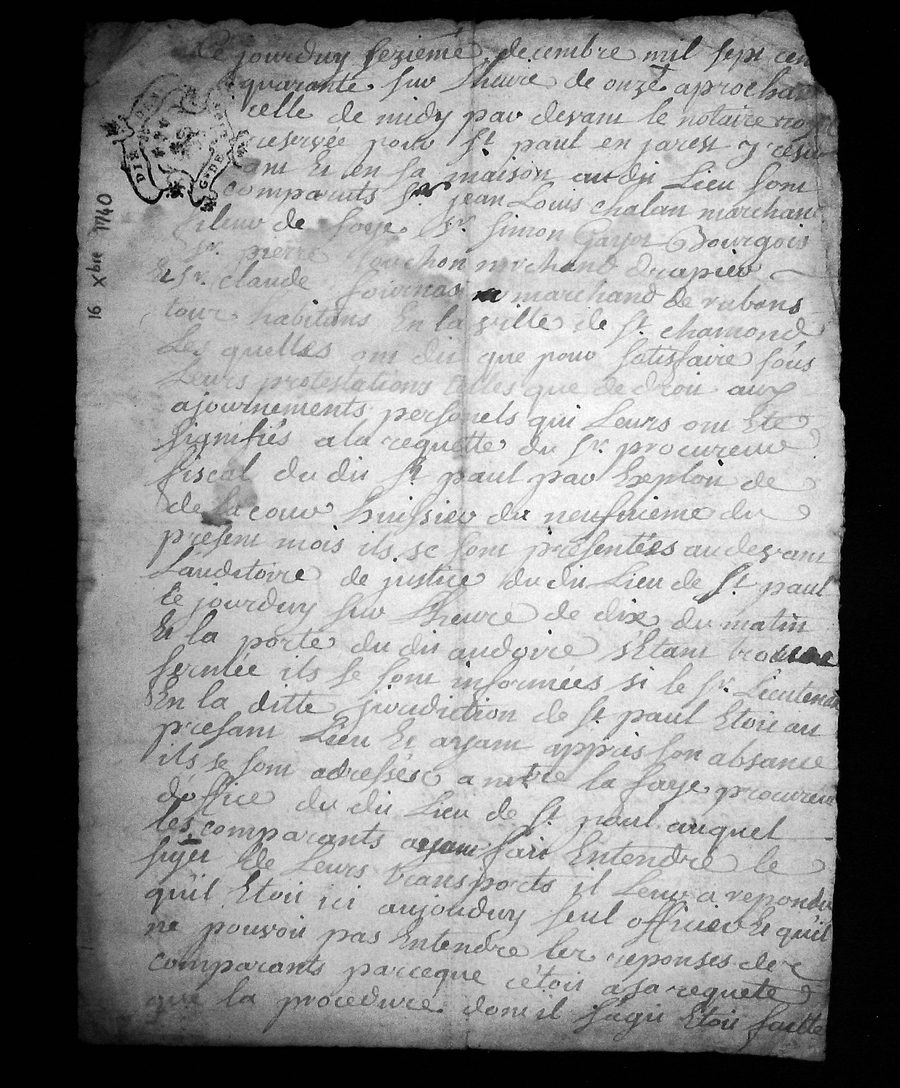 Ce jourduy sezieme decembre mil sept cen
quarante sur lheure de onze aprochan
celle de midy par devant le notaire roy
reservée pour St paul en jarest y resid
ant et en sa maison audit Lieu sont
comparuts Sr jean Louis chalan marchand
fileur de soye Sr Simon Gayot Bourgois
Sr pierre marchand drapier
& Sr claude fournas marchand de rubans
tous habitans En la ville de St chamond
Les quelles ont dit que pour satisfaire sous
Leurs protestations telles que de droit aux
ajournements personels qui Leurs ont Ete
signifiés a la requette du Sr procureur
fiscal du dit St paul par Exploit de
de Lacour huissier du neufvieme du
present mois ils se sont présentées audevant
Lauditoire de justice du dit Lieu de St paul
Ce jourduy sur Lheure de dix du matin
Et la porte du dit audoire s'Etant
fermée ils se sont informées si le Sr Lieutenant
En la ditte juridiction de St paul Etoit au
present Lieu Et ayant appris son absance
ils se sont adressés a mtre la faye procureur
d'office du dit Lieu de St paul auquel
les comparants ayant fait Entendre le
sujet de Leurs transports il Leur a repondu
quil Etoit ici aujourduy seul officier Et qu'il
ne pouvoit pas Entendre les reponses des
comparants parceque c'étoit a sa requete
que la procedure dont il s'agit Etoit faitte
16 Xbre 1740
DIE
G. DE